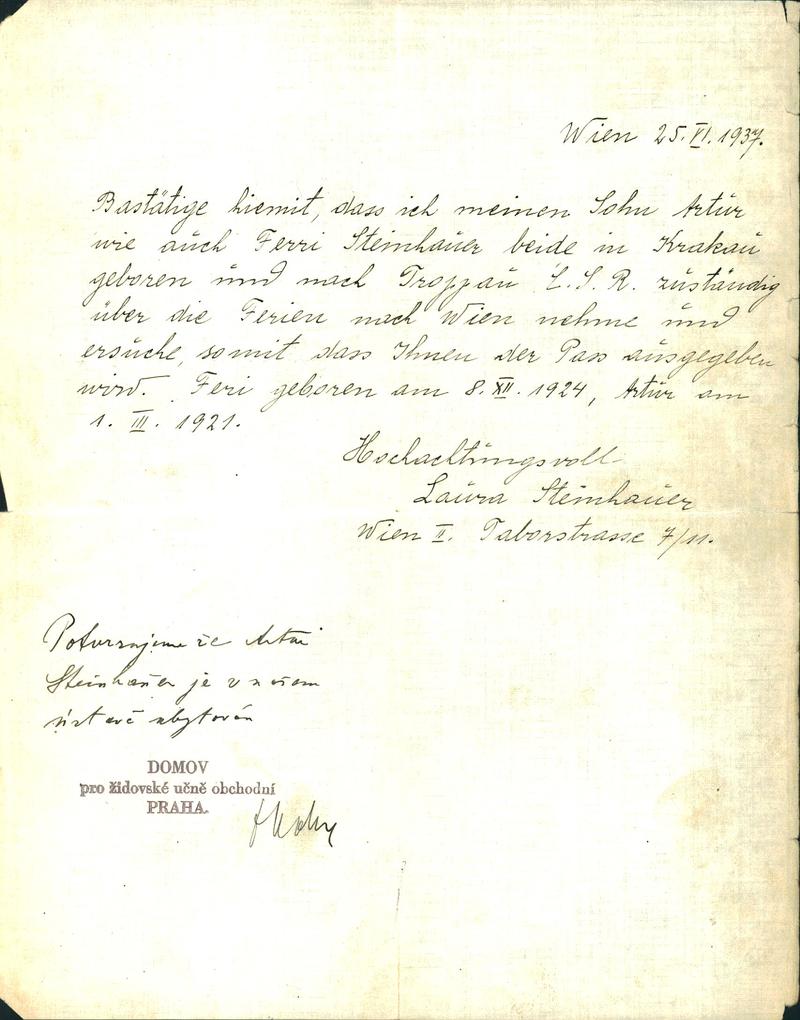 Wien 25. VI. 1937.
Bastätige hiemit, dass ich meinen Sohn Artur
wie auch Ferri Steinhauer beide in Krakau
geboren und nach Troppau Č. S. R. zuständig
über die Ferien nach Wien nehme und
ersuche, somit dass Ihnen der Pass ausgegeben
wird. Feri geboren am 8. XII. 1924, Artur am
1. III. 1921.
Hochachtungsvoll
Laura Steinhauer
Wien II. Taborstrasse 7/11.
Potvrzujeme že Artur
Steinhauer je v našem
ústavě ubytován
DOMOV
pro židovské učně obchodní
PRAHA.